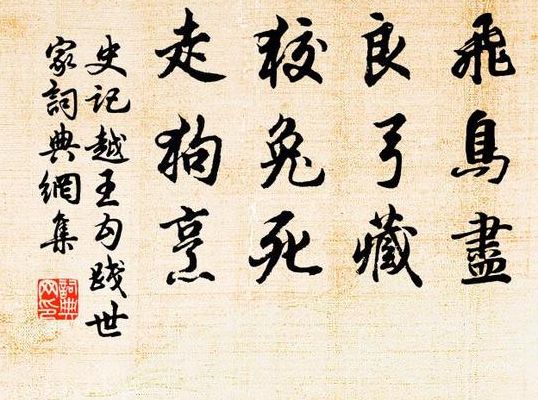 飛鳥盡
良弓藏
狡兔死
走狗烹
史記越王勾踐世
家詞典網集
詞典网印